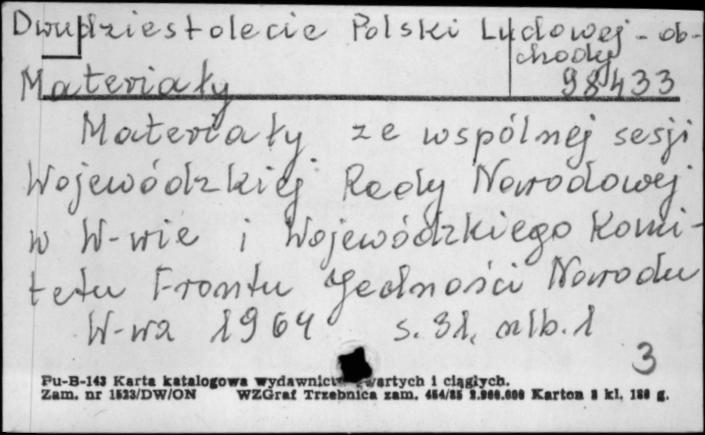 Dwudziestolecie Polski Ludowej - ob-
chody
Materiały 98433
Materiały ze wspólnej sesji
Wojewódzkiej Rady Narodowej
w W-wie i Wojewódzkiego Komi-
tetu Frontu Jedności Narodu
W-wa 1964 s. 31, nlb. 1
3
Pu-B-143 Karta katalogowa wydawnictw zwartych i ciągłych.
Zam. nr 1523/DW/ON WZGraf Trzebnica zam. 454/85 2.000.000 Karton 3 kl. 180 g.